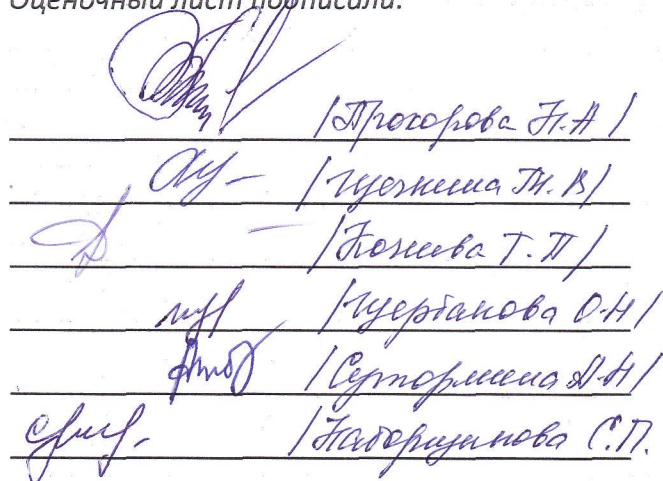 Оценочный лист подписали:
/Прохорова Н.А/
/Щечкина Т.В/
/Ножнева Т.П/
/Щербакова О.Н/
/Сутормина А.Н/
/Наборщикова С.П.